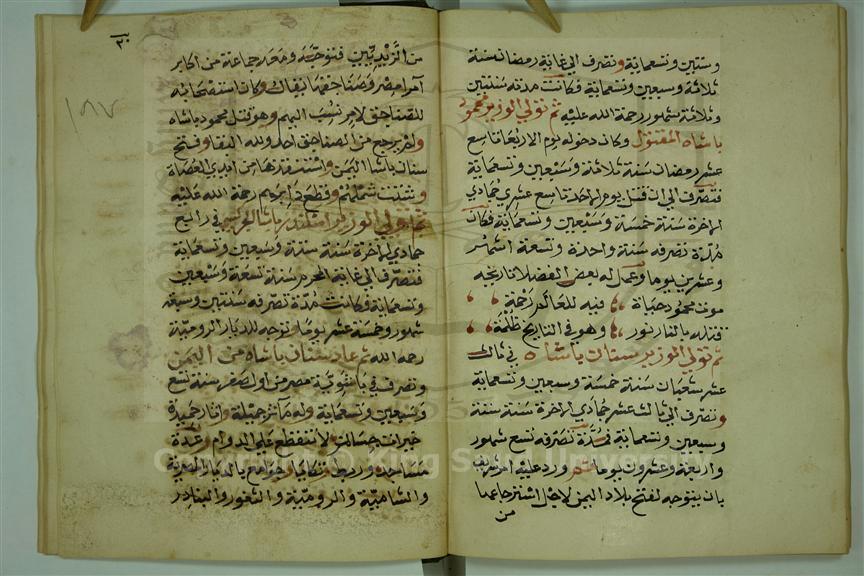 وستين وتسعماية وتصرف الي غاية رمضان سنة
ثلاثة وسبعين وتسعماية فكانت مدته سنتين
وثلاثة شهور رحمة الله عليه ثم تولي الوزير محمود
باشاه المقتول وكان دخوله يوم الاربعا تاسع
عشر رمضان سنة ثلاثة وسبعين وتسعماية
فتصرف الي ان قتل يوم الاحد تاسع عشري جمادي
الاخرة سنة خمسة وسبعين وتسعماية فكان
مدة تصرفه سنة واحدة وتسعة اشهر
وعشرين يوما وعمل له بعض الفضلا تاريخه
موت محمود حياة فيه للعالم رحمة
قتله بالنار نور وهو في التاريخ ظلمة
ثم تولي الوزير سنان باشاه في ثالث
عشر شعبان سنة خمسة وسبعين وتسعماية
وتصرف الي ثالث عشر جمادي الاخرة سنة ستة
وسبعين وتسعماية في مدة تصرفه تسع شهور
واربعة وعشرون يوما ثم ورد عليه امر شريف
بان يتوجه لفتح بلاد اليمن لاجل استرجاعها
من
٣٠
من الزيديين فتوجه ومعه جماعة من اكابر
امراء مصر وصناجقها وكان استصحابه
للصناجق لامر نسب اليهم وهو قتل محمود باشاه
ولم يرجع من الصناجق احد ولله البقا وفتح
سنان باشا اليمن واستنقذها من ايدي العصاة
وشتت شملهم وقطع دابرهم رحمة الله عليه
ثم تولي الوزير اسكندر باشا الجركسي في رابع
جمادي الاخرة سنة ستة وسبعين وتسعماية
فتصرف الي غاية المحرم سنة تسعة وسبعين
وتسعماية فكانت مدة تصرفه سنتين وسبعة
شهور وخمسة عشر يوما وتوجه للديار الرومية
رحمه الله ثم عاد سنان باشاه من اليمن
وتصرف في مصر من اول صفر سنة تسع
وسبعين وتسعماية وله مآثر جميلة واثار حميدة
خيرات حسان لا تنقطع علي الدوام وعدة
مساجد وربط وتكايا وجوامع بالديار المصرية
والشامية والرومية والثغور والبنادر
King Saud University